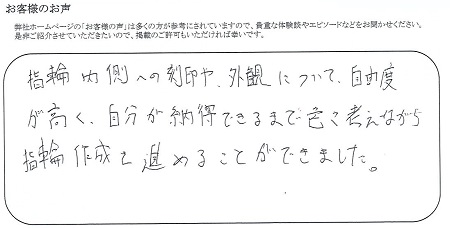 お客様のお声
弊社ホームページの「お客様の声」は多くの方が参考にされていますので、貴重な体験談やエピソードなどをお聞かせください。
是非ご紹介させていただきたいので、掲載のご許可もいただければ幸いです。
指輪内側への刻印や、外観について、自由度
が高く、自分が納得できるまで色々考えながら
指輪作成を進めることができました。